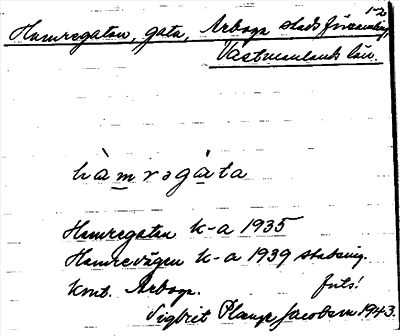 1-2
Hamregatan, gata, Arboga stads församling,
Västmanlands län.
hàmrəgàta
Hamregatan k-a 1935
Hamrevägen k-a 1939 stadsing.
knt. Arboga. futs!
Sigbrit Plænge Jacobson 1943.